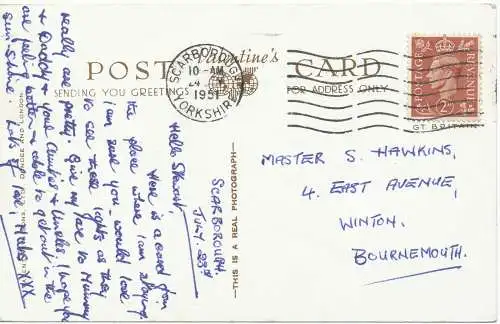 POST CARD
Valentine's
SENDING YOU GREETINGS
FOR ADDRESS ONLY
SCARBOROUGH
10-AM
1951
YORKSHIRE
POSTAGE
REVENUE
GT BRITAIN
THIS IS A REAL PHOTOGRAPH
DUNDEE AND LONDON
SCARBOROUGH,
JULY. 23rd
Hello Stewart,
Here is a card from
the place where I am staying.
I am sure you would love
to see these lights as they
really are pretty. Give my love to Mummy
& Daddy & your Aunties & Uncles, I hope you
are feeling better & able to get out in the
sun-shine. Lots of love,
XXX
MASTER S. HAWKINS,
4. EAST AVENUE,
WINTON,
BOURNEMOUTH.